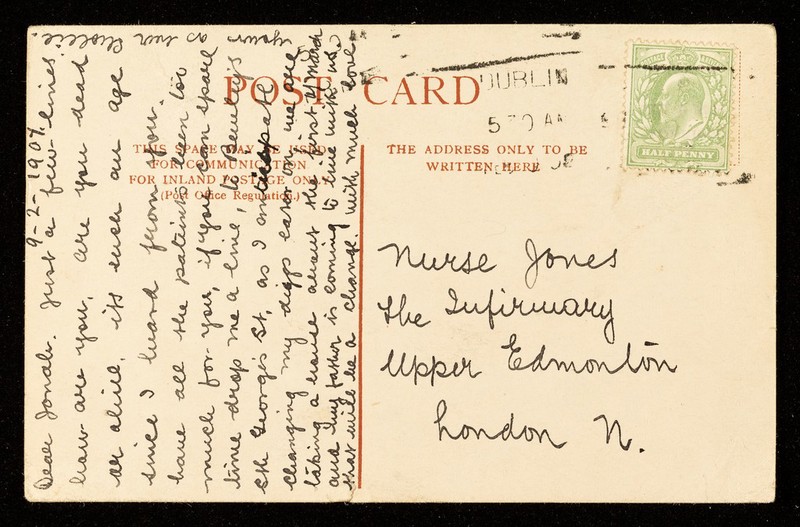 POST CARD
THIS SPACE MAY BE USED
FOR COMMUNICATION
FOR INLAND POSTAGE ONLY
(Post Office Regulation.)
THE ADDRESS ONLY TO BE
WRITTEN HERE
DUBLIN
HALF PENNY
9-2-1907.
Dear Jonah. Just a few lines
how are you, are you dead
or alive, its such an age
since I heard from you.
have all the patients been too
much for you, if you can spare
time drop me a line, to Henrys
Sth Georges St. as I am
changing my diggs easter we are
taking a house about the first of March
and my father is coming to live with us.
that will be a change. with much love
yours as ever
Nurse Jones
the Infirmary
Upper Edmonton
London N.